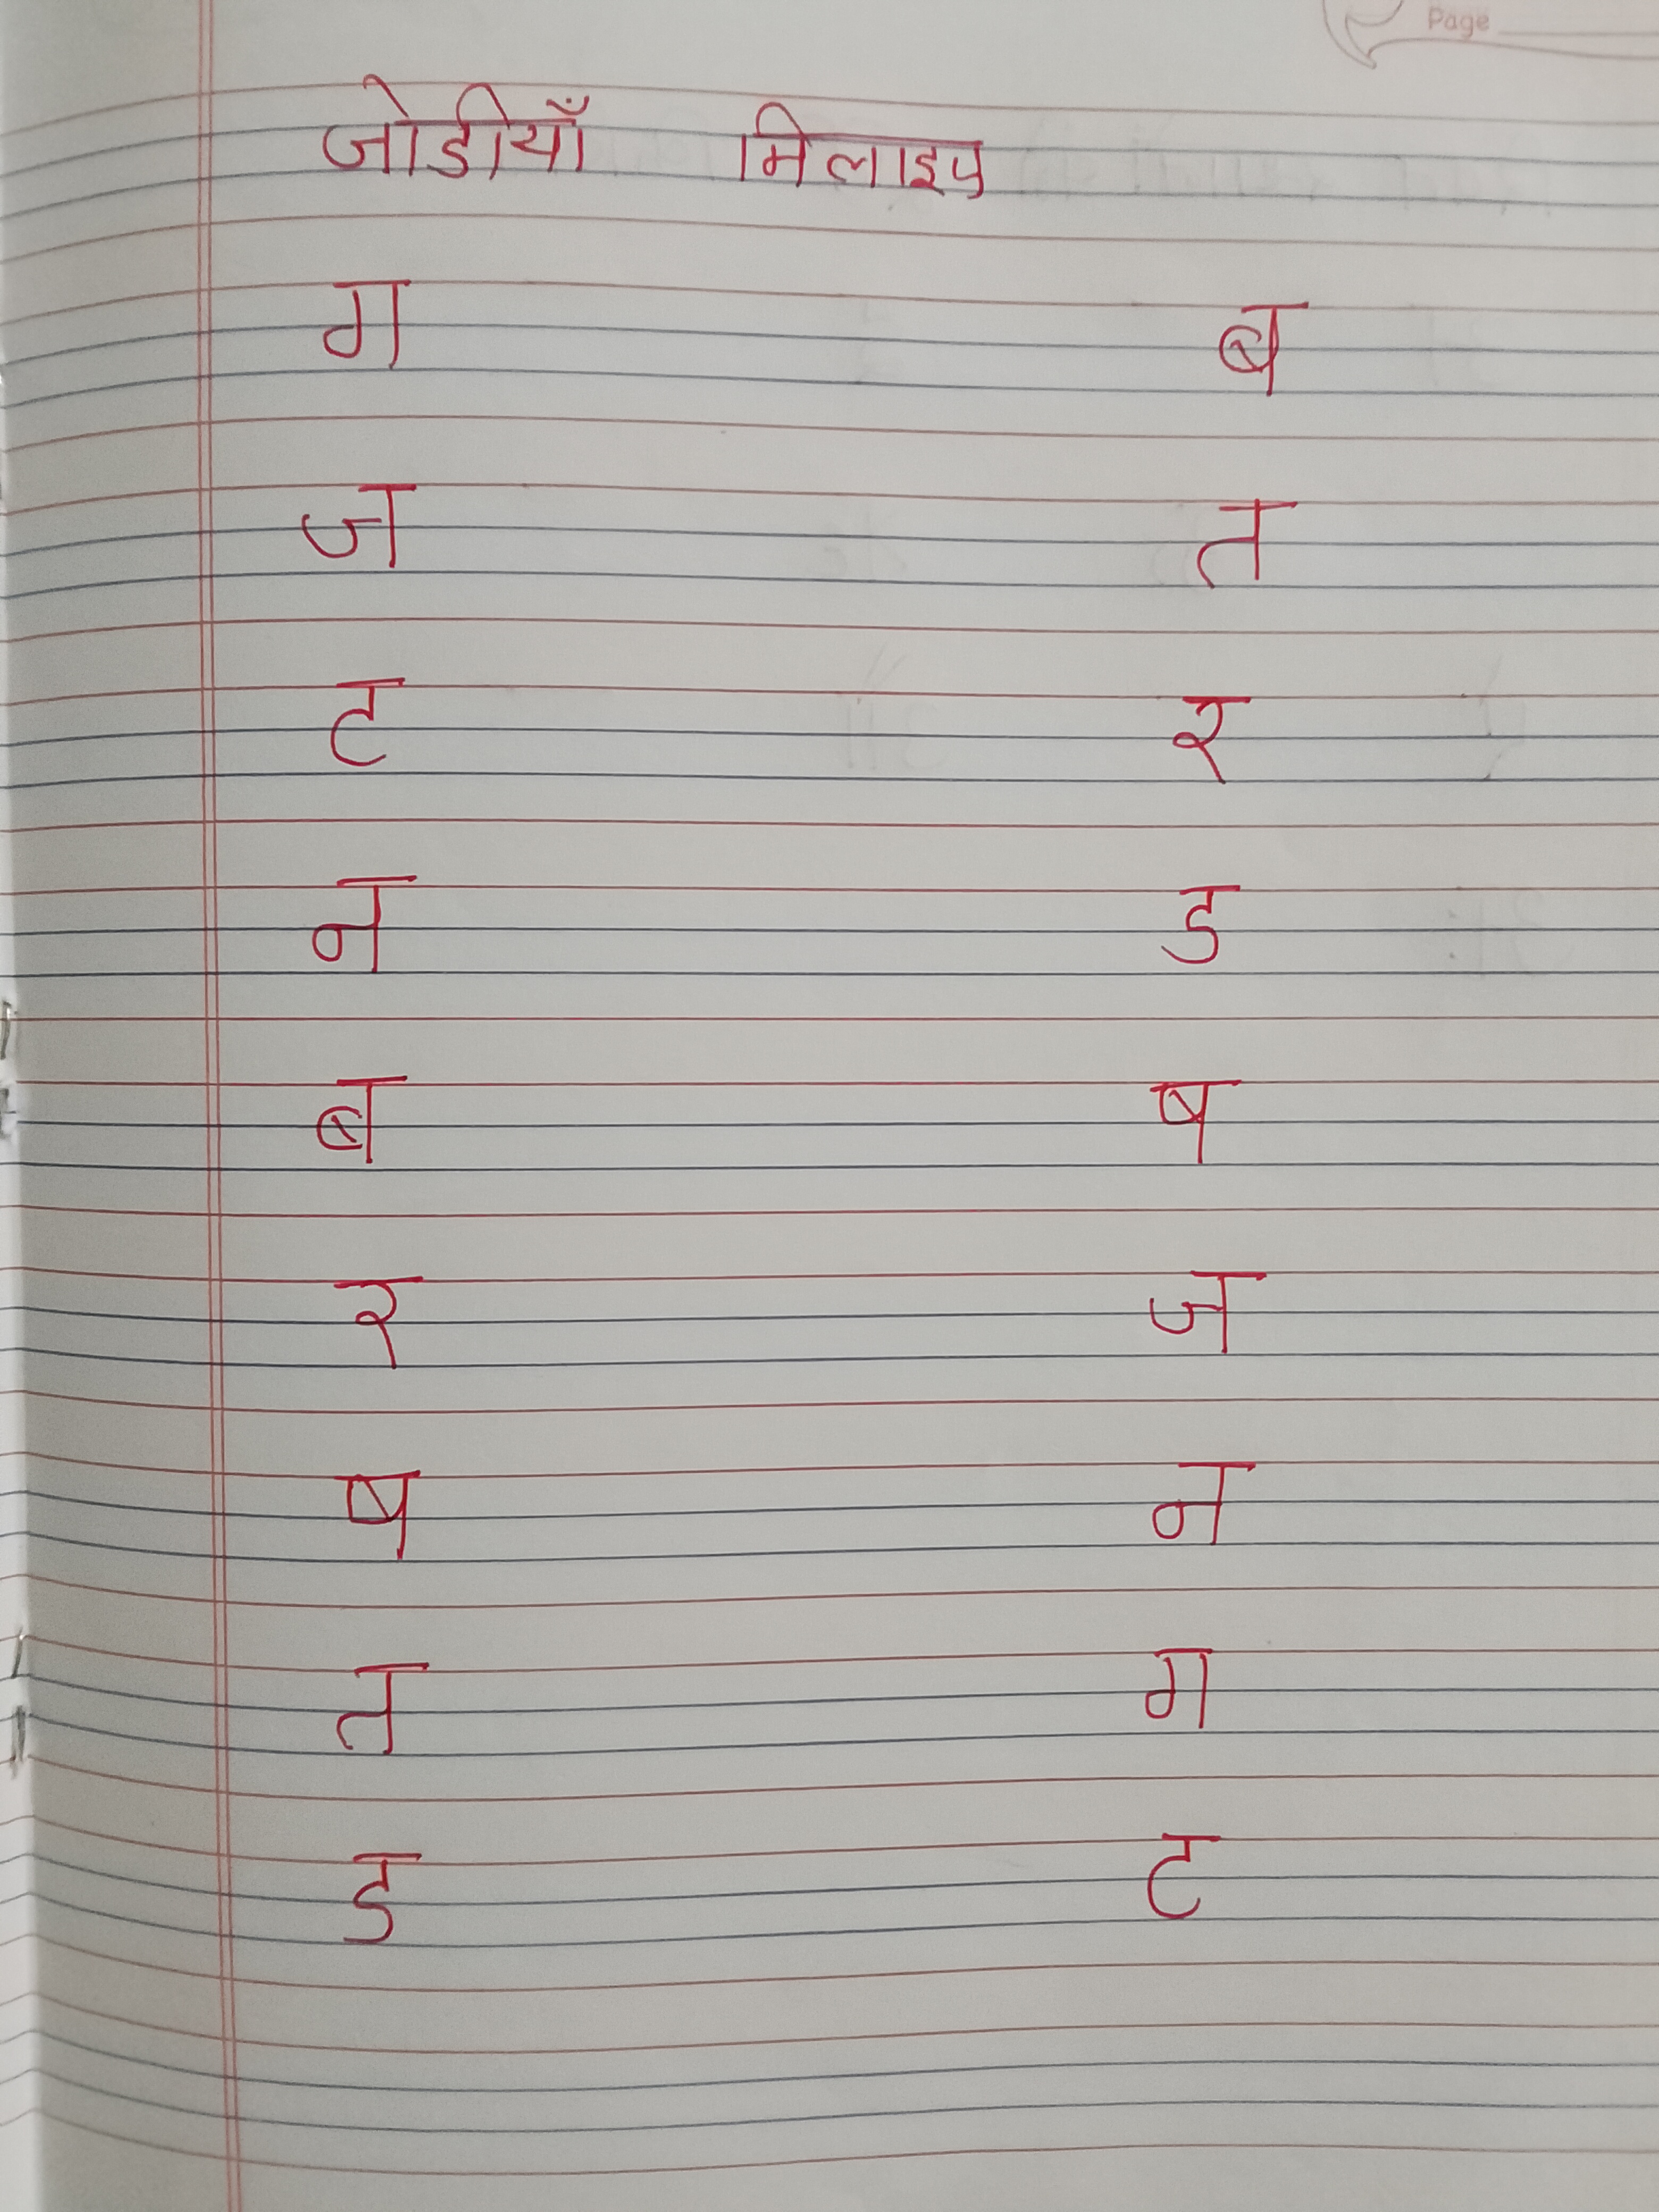 Page
जोडीयाँ मिलाइए
ग ब
ज त
ट र
न ड
ब ष
र ज
ष न
त ग
ड ट